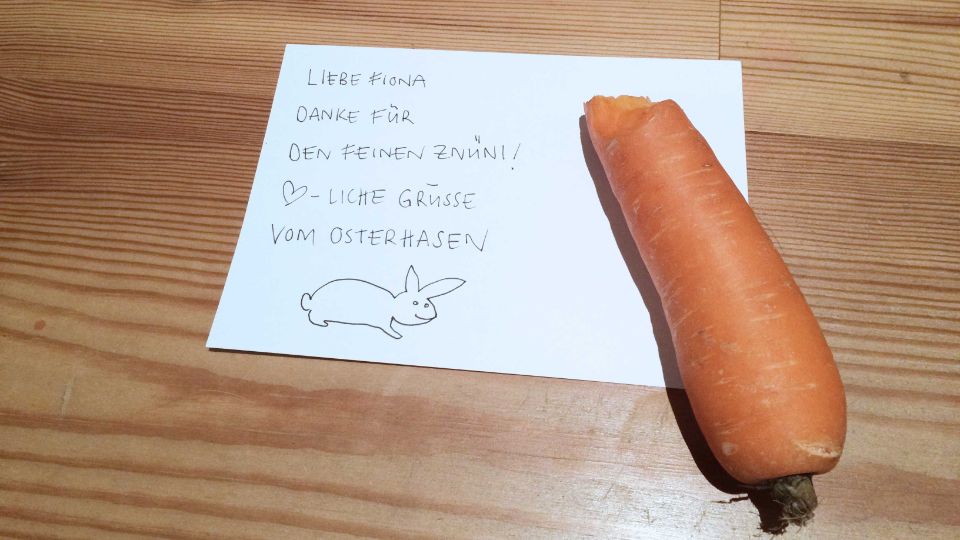 LIEBE FIONA
DANKE FÜR
DEN FEINEN ZNÜNI!
♡-LICHE GRÜSSE
VOM OSTERHASEN